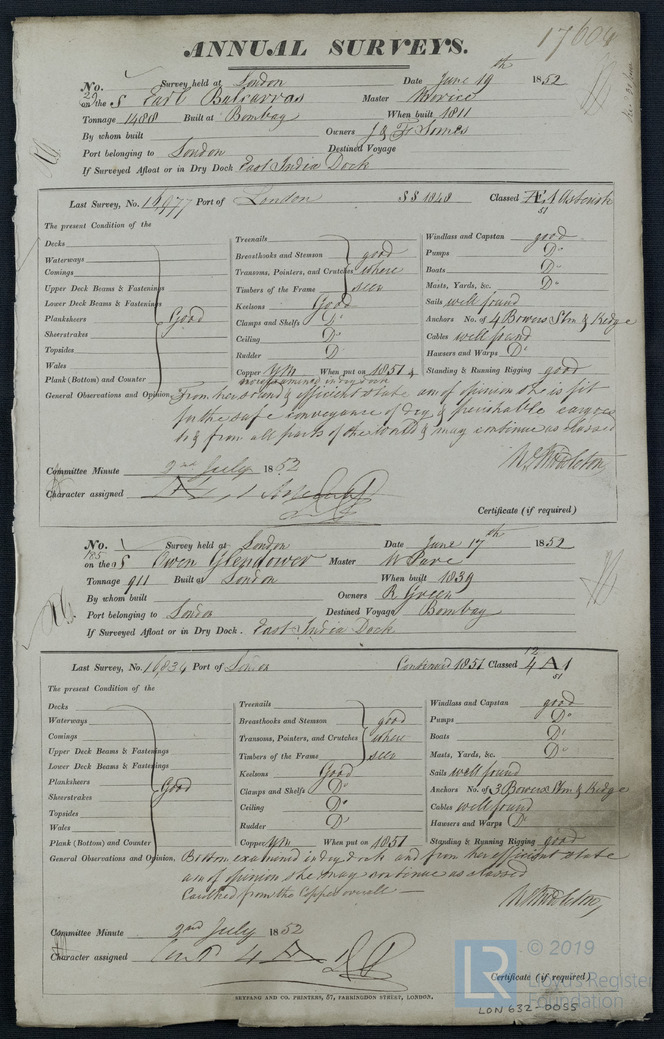 17604
ANNUAL SURVEYS.
No. Survey held at London Date June 19th 1852
on the S Earl Balcarras Master Morice
Tonnage 1488 Built at Bombay When built 1811
By whom built Owners J & F Somes
Port belonging to London Destined Voyage
If Surveyed Afloat or in Dry Dock East India Dock
Last Survey, No. Port of London SS 1848 Classed Æ 1 Asterisk
51
The present Condition of the
Decks
Waterways
Comings
Upper Deck Beams & Fastenings
Lower Deck Beams & Fastenings
Planksheers Good
Sheerstrakes
Topsides
Wales
Plank (Bottom) and Counter
Treenails
Breasthooks and Stemson good
Transoms, Pointers, and Crutches where
Timbers of the Frame seen
Keelsons Good
Clamps and Shelfs Do
Ceiling Do
Rudder Do
Copper YM When put on 1851
now examined in dry dock
Windlass and Capstan good
Pumps Do
Boats Do
Masts, Yards, &c. Do
Sails well found
Anchors No. of 4 Bowers Stm & Kedge
Cables well found
Hawsers and Warps Do
Standing & Running Rigging good
General Observations and Opinion, From her sound & efficient state am of opinion she is fit
for the safe conveyance of dry & perishable cargoes
to & from all parts of the world & may continue as classed
Committee Minute 2nd July 1852
Character assigned
Certificate (if required)
No. Survey held at London Date June 17th 1852
185
on the S Owen Glendower Master W Pare
Tonnage 911 Built at London When built 1839
By whom built Owners R Green
Port belonging to London Destined Voyage Bombay
If Surveyed Afloat or in Dry Dock. East India Dock
Last Survey, No. 16,834 Port of London Continued 1851 Classed 4 A 1
12
51
The present Condition of the
Decks
Waterways
Comings
Upper Deck Beams & Fastenings
Lower Deck Beams & Fastenings
Planksheers Good
Sheerstrakes
Topsides
Wales
Plank (Bottom) and Counter
Treenails
Breasthooks and Stemson good
Transoms, Pointers, and Crutches where
Timbers of the Frame seen
Keelsons Good
Clamps and Shelfs Do
Ceiling Do
Rudder Do
Copper YM When put on 1851
Windlass and Capstan good
Pumps Do
Boats Do
Masts, Yards, &c. Do
Sails well found
Anchors No. of 3 Bowers Stm & Kedge
Cables well found
Hawsers and Warps Do
Standing & Running Rigging good
General Observations and Opinion, Bottom examined in dry dock and from her efficient state
am of opinion she may continue as classed
Caulked from the Copper overall
Committee Minute 2nd July 1852
Character assigned 4 A 1
Certificate (if required)
SEYFANG AND CO. PRINTERS, 57, FARRINGDON STREET, LONDON.
LR © 2019
Lloyd's Register
Foundation
LON 632-0055